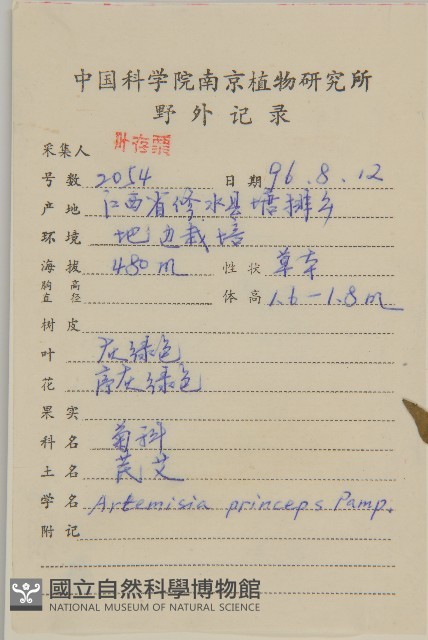 中国科学院南京植物研究所
野外记录
采集人 叶存粟
号数 2054 日期 96.8.12
产地 江西省修水县塘排乡
环境 地边栽培
海拔 480m 性状 草本
胸高直径 体高 1.6—1.8m
树皮
叶 灰绿色
花 序灰绿色
果实
科名 菊科
土名 芪艾
学名 Artemisia princeps Pamp.
附记
國立自然科學博物館
NATIONAL MUSEUM OF NATURAL SCIENCE